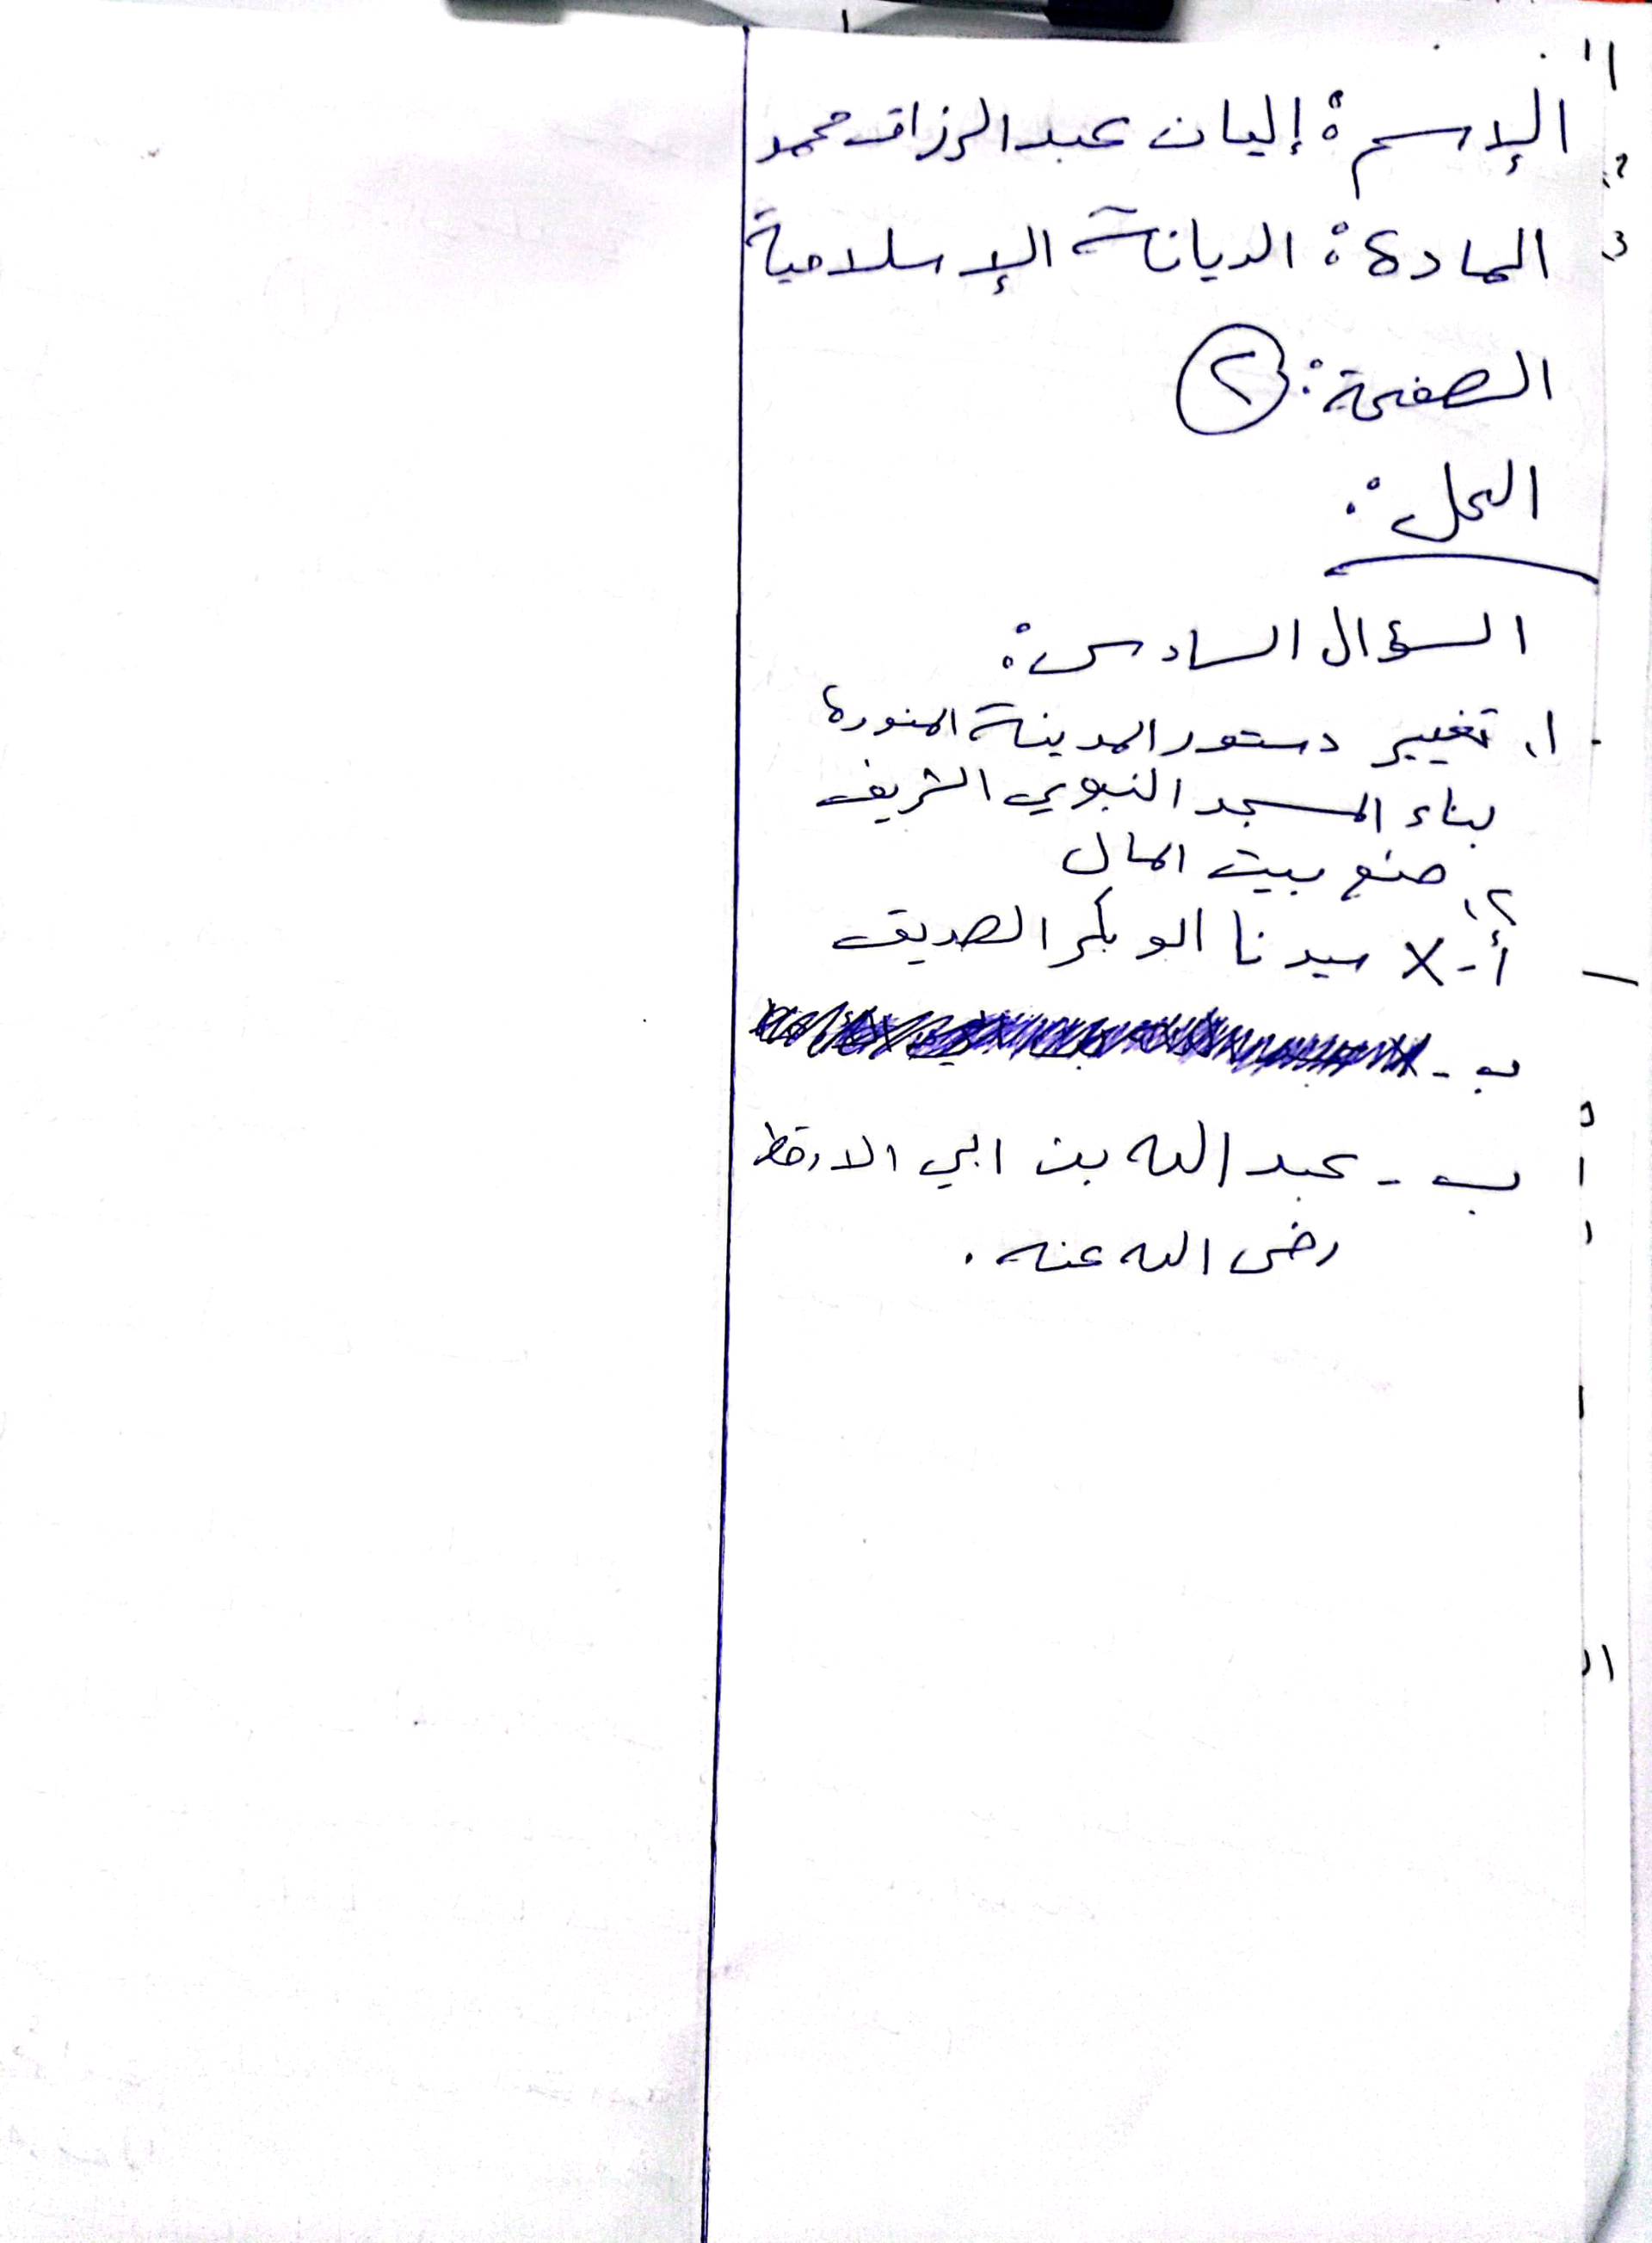 الإسم: إليان عبد الرزاق محمد
المادة: الديانة الإسلامية
الصفحة: ٢
الحل:
السؤال السادس:
١. تغيير دستور المدينة المنورة
بناء المسجد النبوي الشريف
صنع بيت المال
٢.
أ- X سيدنا ابو بكر الصديق
ب-
ب- عبد الله بن ابي الارقط
رضى الله عنه.